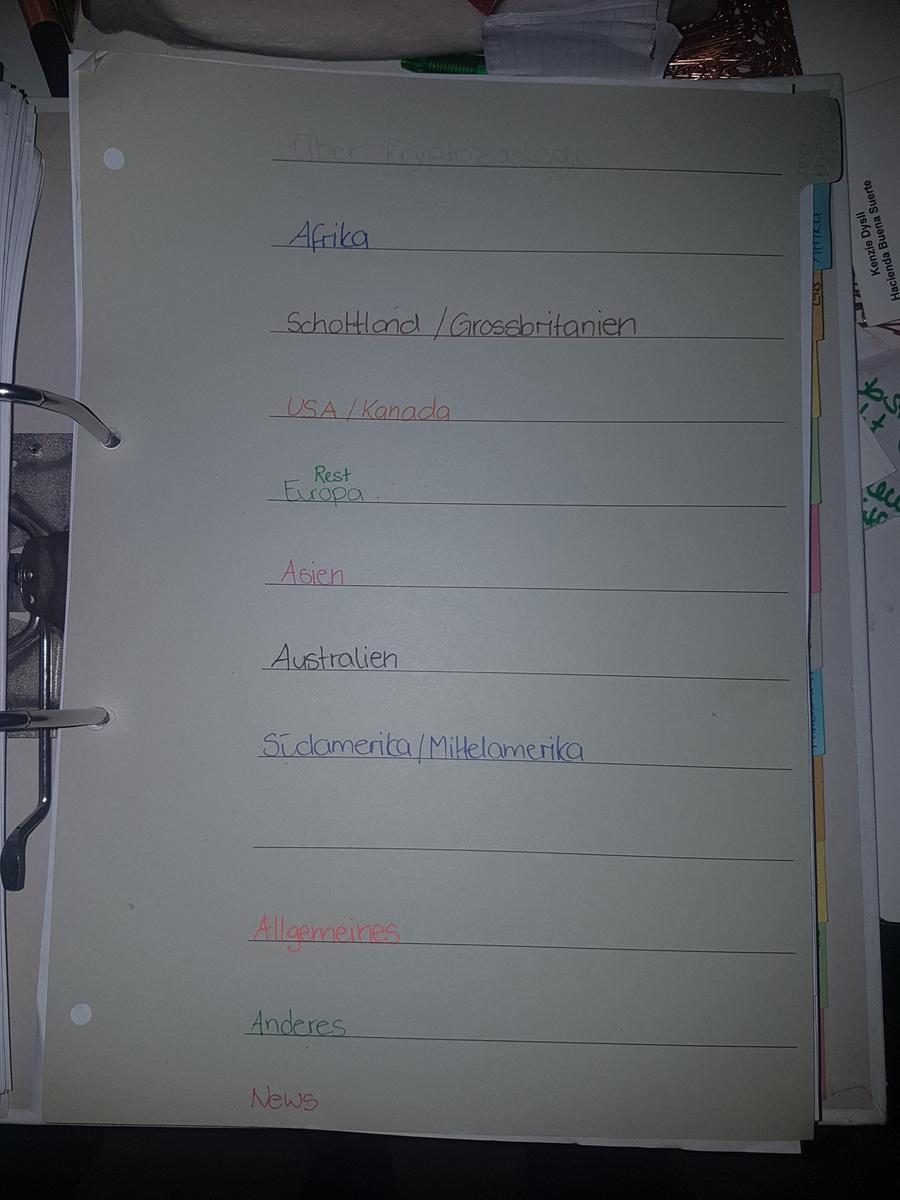 Über Kryptozoologie
Afrika
Schottland / Grossbritanien
USA / Kanada
Rest
Europa
Asien
Australien
Südamerika / Mittelamerika
Allgemeines
Anderes
News
Kenzie Dysli
Hacienda Buena Suerte